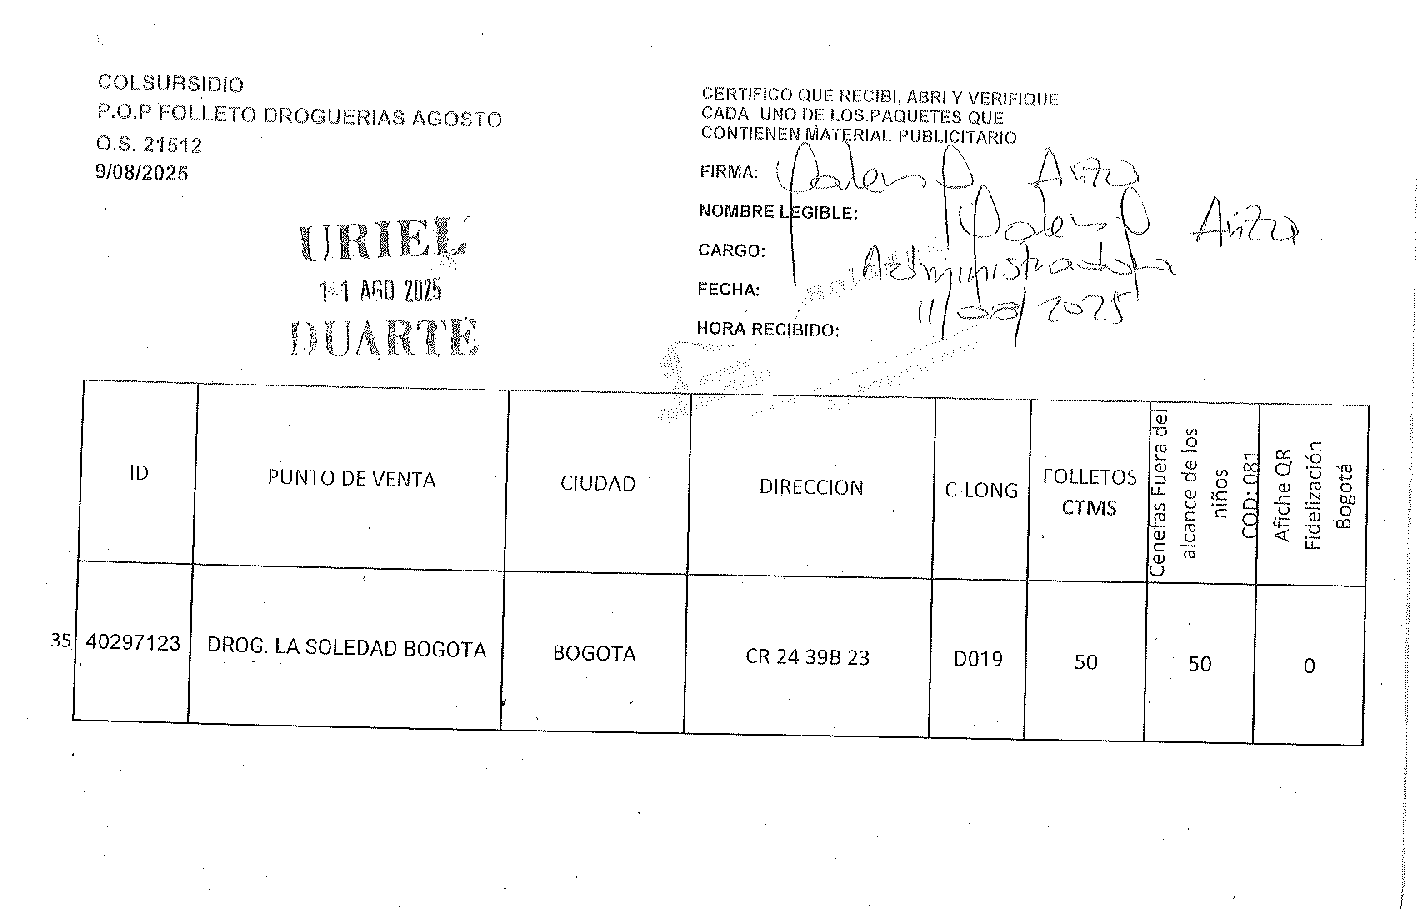 COLSURSIDIO
P.O.P FOLLETO DROGUERIAS AGOSTO
O.S. 21512
9/08/2025
URIEL
11 AGO 2025
DUARTE
CERTIFICO QUE RECIBI, ABRI Y VERIFIQUE
CADA UNO DE LOS PAQUETES QUE
CONTIENEN MATERIAL PUBLICITARIO
FIRMA:
NOMBRE LEGIBLE:
CARGO: Administradora
FECHA: 11/08/2025
HORA RECIBIDO:
ID
PUNTO DE VENTA
CIUDAD
DIRECCION
C LONG
FOLLETOS
CTMS
Cenefas Fuera del
alcance de los
niños
COD: 081
Afiche QR
Fidelización
Bogotá
35 40297123 DROG. LA SOLEDAD BOGOTA BOGOTA CR 24 39B 23 D019 50 50 0